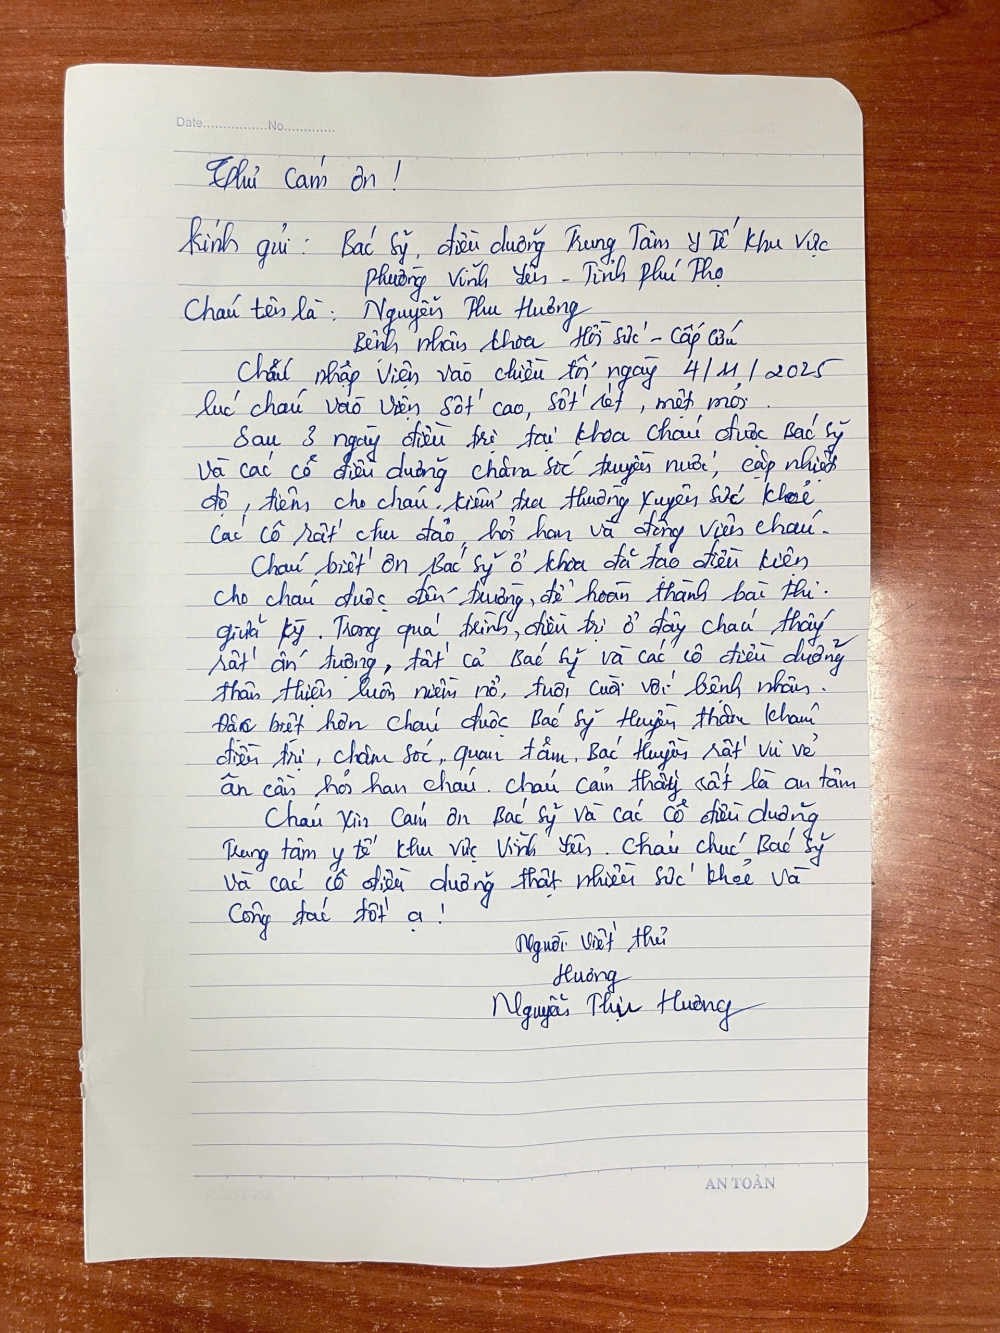 Date................No.............
Thư cám ơn !
Kính gửi : Bác sỹ, điều dưỡng Trung Tâm y Tế khu vực
phường Vĩnh Yên - Tỉnh Phú Thọ
Cháu tên là : Nguyễn Thu Hương
Bệnh nhân khoa Hồi sức - Cấp cứu
Cháu nhập viện vào chiều tối ngày 4/11/2025
lúc cháu vào viện sốt cao, sốt rét, mệt mỏi.
Sau 3 ngày điều trị tại khoa cháu được Bác sỹ
và các cô điều dưỡng chăm sóc truyền nước, cặp nhiệt
độ, tiêm cho cháu. kiểm tra thường xuyên sức khoẻ
Các cô rất chu đáo, hỏi han và động viên cháu.
Cháu biết ơn Bác sỹ ở khoa đã tạo điều kiện
cho cháu được đến trường, để hoàn thành bài thi
giữa kỳ. Trong quá trình, điều trị ở đây cháu thấy
rất ấn tượng, tất cả Bác sỹ và các cô điều dưỡng
thân thiện luôn niềm nở, tươi cười với bệnh nhân.
Đặc biệt hơn cháu được Bác sỹ Huyền thăm khám
điều trị, chăm sóc, quan tâm. Bác Huyền rất vui vẻ
ân cần hỏi han cháu. Cháu cảm thấy rất là an tâm
Cháu xin cám ơn Bác sỹ và các cô điều dưỡng
Trung tâm y tế khu vực Vĩnh Yên. Cháu chúc Bác sỹ
và các cô điều dưỡng thật nhiều sức khoẻ và
công tác tốt ạ !
Người viết thư
Hương
Nguyễn Thu Hương
AN TOÀN